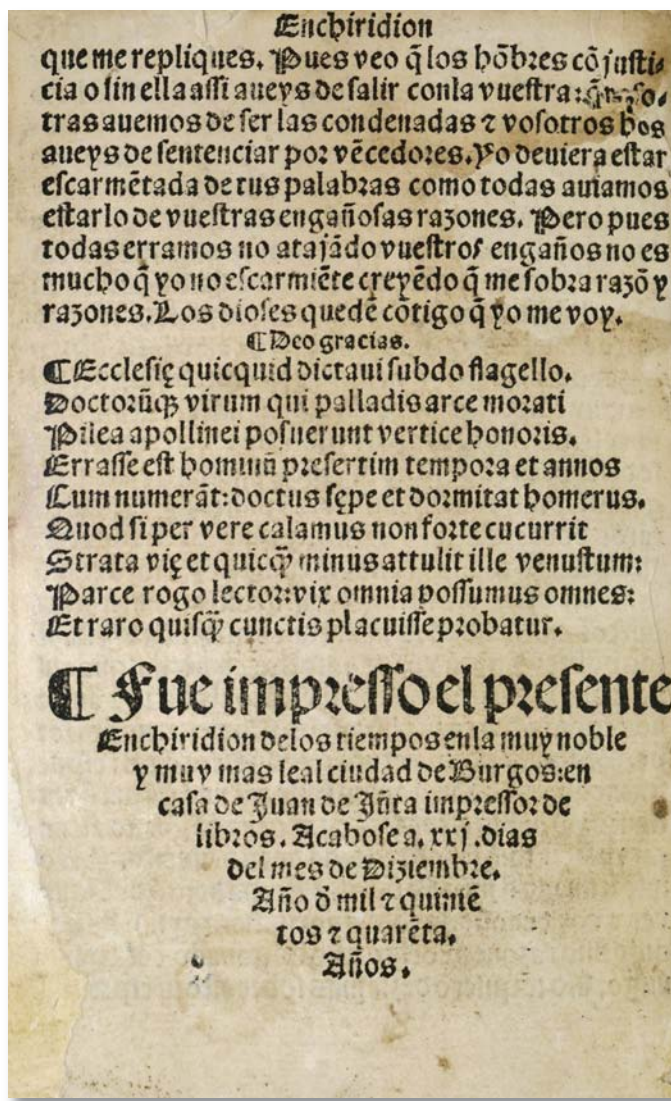 Enchiridion
que me repliques. Pues veo q̃ los hõbres cõ justi-
cia o sin ella assi aueys de salir conla vuestra: so-
tras auemos de ser las condenadas ⁊ vosotros hos
aueys de sentenciar por vẽcedores. Yo deuiera estar
escarmẽtada de tus palabras como todas auiamos
estarlo de vuestras engañosas razones. Pero pues
todas erramos no atajãdo vuestros engaños no es
mucho q̃ yo no escarmiẽte creyẽdo q̃ me sobra razõ y
razones. Los dioses quedẽ cõtigo q̃ yo me voy.
¶ Deo gracias.
¶ Ecclesię quicquid dictaui subdo flagello.
Doctorũqꝫ virum qui palladis arce morati
Pilea apollinei posuerunt vertice honoris.
Errasse est hominũ presertim tempora et annos
Cum numerãt: doctus sępe et dormitat homerus.
Quod si per vere calamus non forte cucurrit
Strata vię et quicq̃ minus attulit ille venustum:
Parce rogo lector: vix omnia possumus omnes:
Et raro quisq̃ cunctis placuisse probatur.
¶ Fue impresso el presente
Enchiridion delos tiempos enla muy noble
y muy mas leal ciudad de Burgos: en
casa de Juan de Jũta impressor de
libros. Acabose a. xxj. dias
del mes de Diziembre.
Año d̃ mil ⁊ quiniẽ
tos ⁊ quarẽta.
Años.